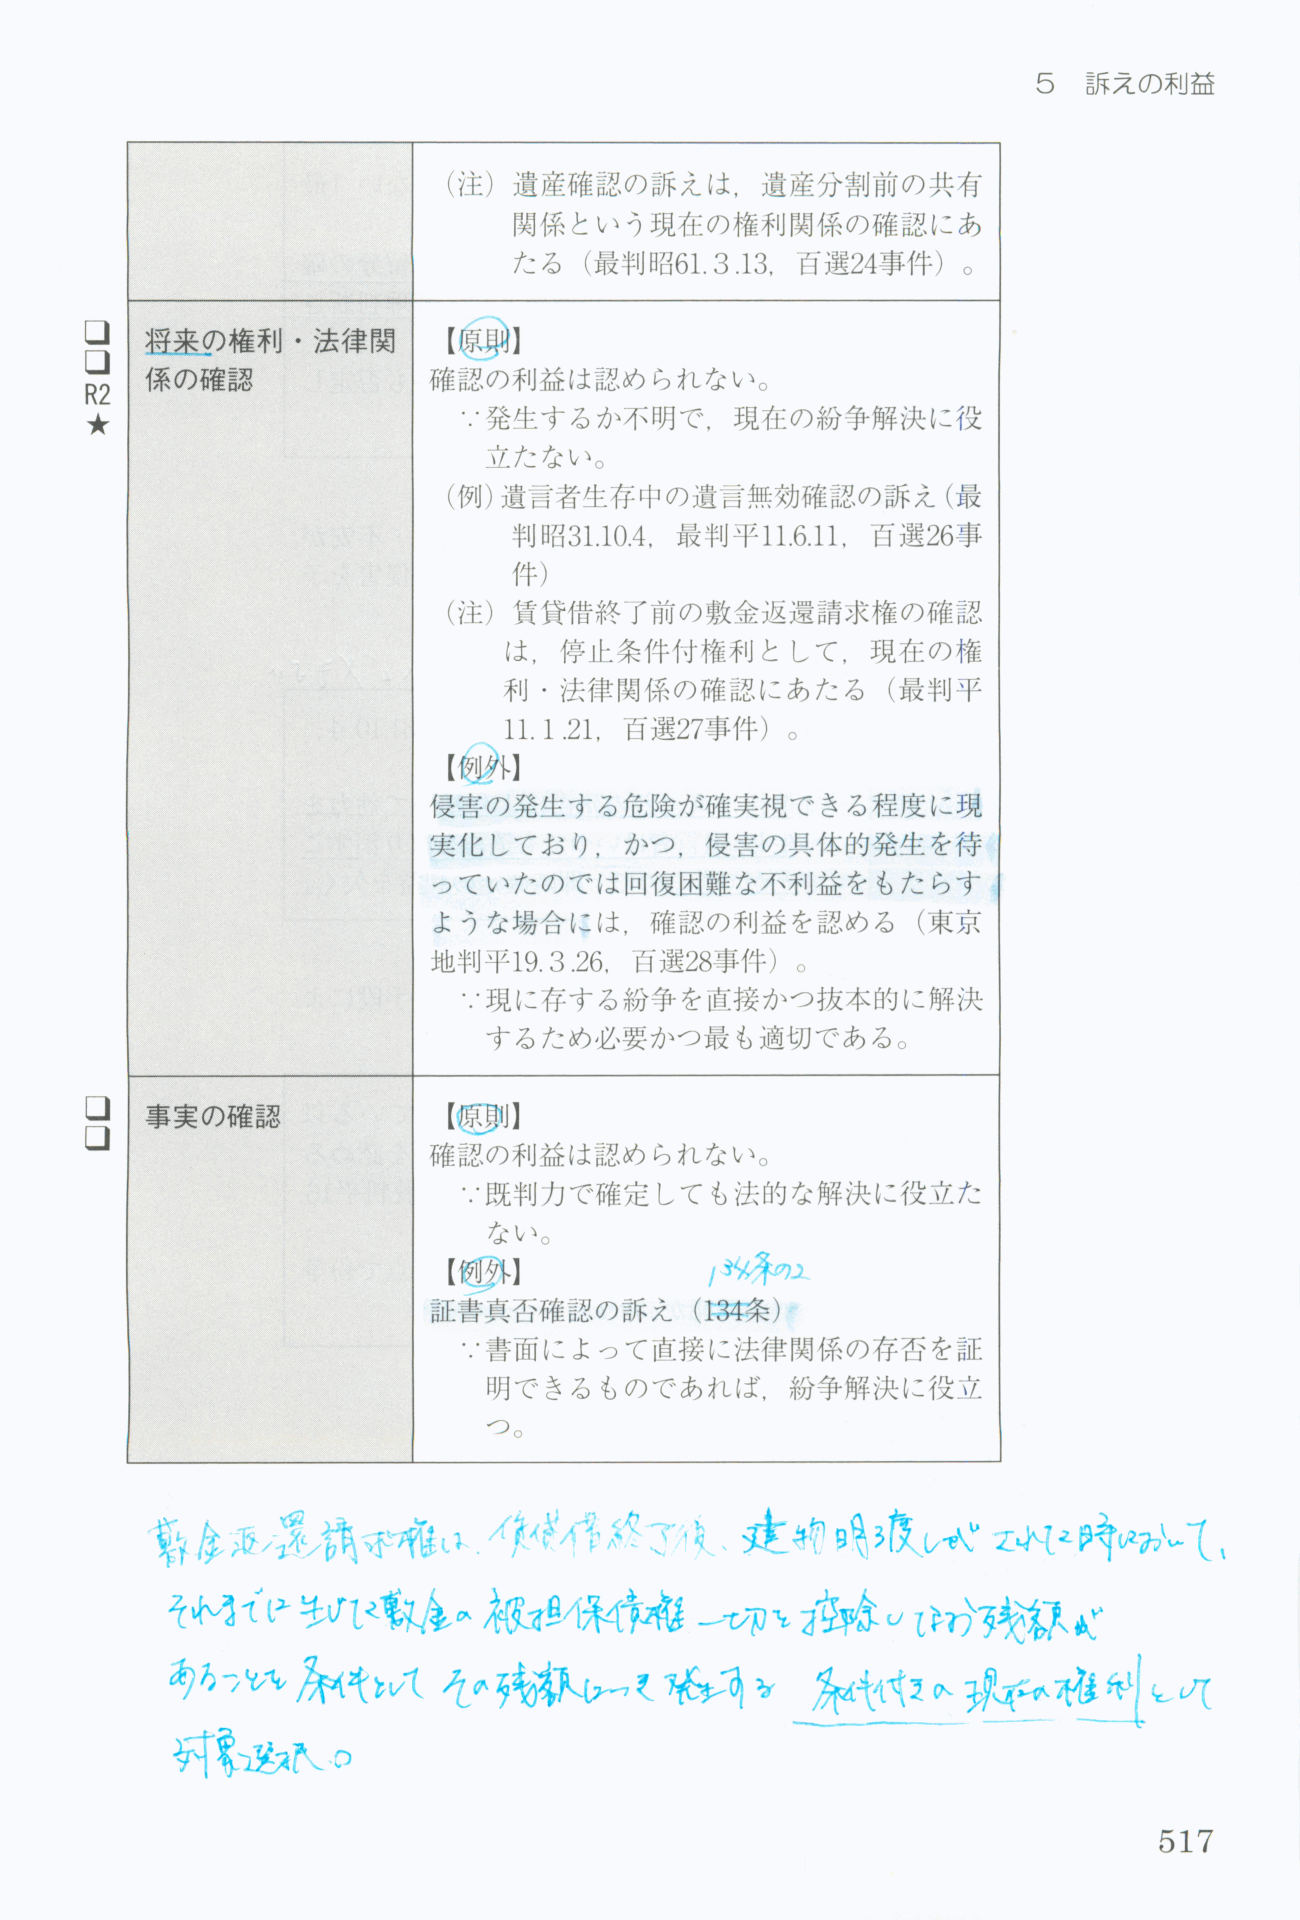 5 訴えの利益
（注）遺産確認の訴えは，遺産分割前の共有
関係という現在の権利関係の確認にあ
たる（最判昭61.3.13，百選24事件）。
将来の権利・法律関
係の確認
R2
★
【原則】
確認の利益は認められない。
∵発生するか不明で，現在の紛争解決に役
立たない。
（例）遺言者生存中の遺言無効確認の訴え（最
判昭31.10.4，最判平11.6.11，百選26事
件）
（注）賃貸借終了前の敷金返還請求権の確認
は，停止条件付権利として，現在の権
利・法律関係の確認にあたる（最判平
11.1.21，百選27事件）。
【例外】
侵害の発生する危険が確実視できる程度に現
実化しており，かつ，侵害の具体的発生を待
っていたのでは回復困難な不利益をもたらす
ような場合には，確認の利益を認める（東京
地判平19.3.26，百選28事件）。
∵現に存する紛争を直接かつ抜本的に解決
するため必要かつ最も適切である。
事実の確認
【原則】
確認の利益は認められない。
∵既判力で確定しても法的な解決に役立た
ない。
【例外】
134条の2
証書真否確認の訴え（134条）
∵書面によって直接に法律関係の存否を証
明できるものであれば，紛争解決に役立
つ。
敷金返還請求権は、賃貸借終了後、建物明け渡しが された時において、
それまでに生じた敷金の被担保債権一切を控除しなお残額が
あることを条件として その残額につき発生する 条件付きの現在の権利として
対象選択○
517